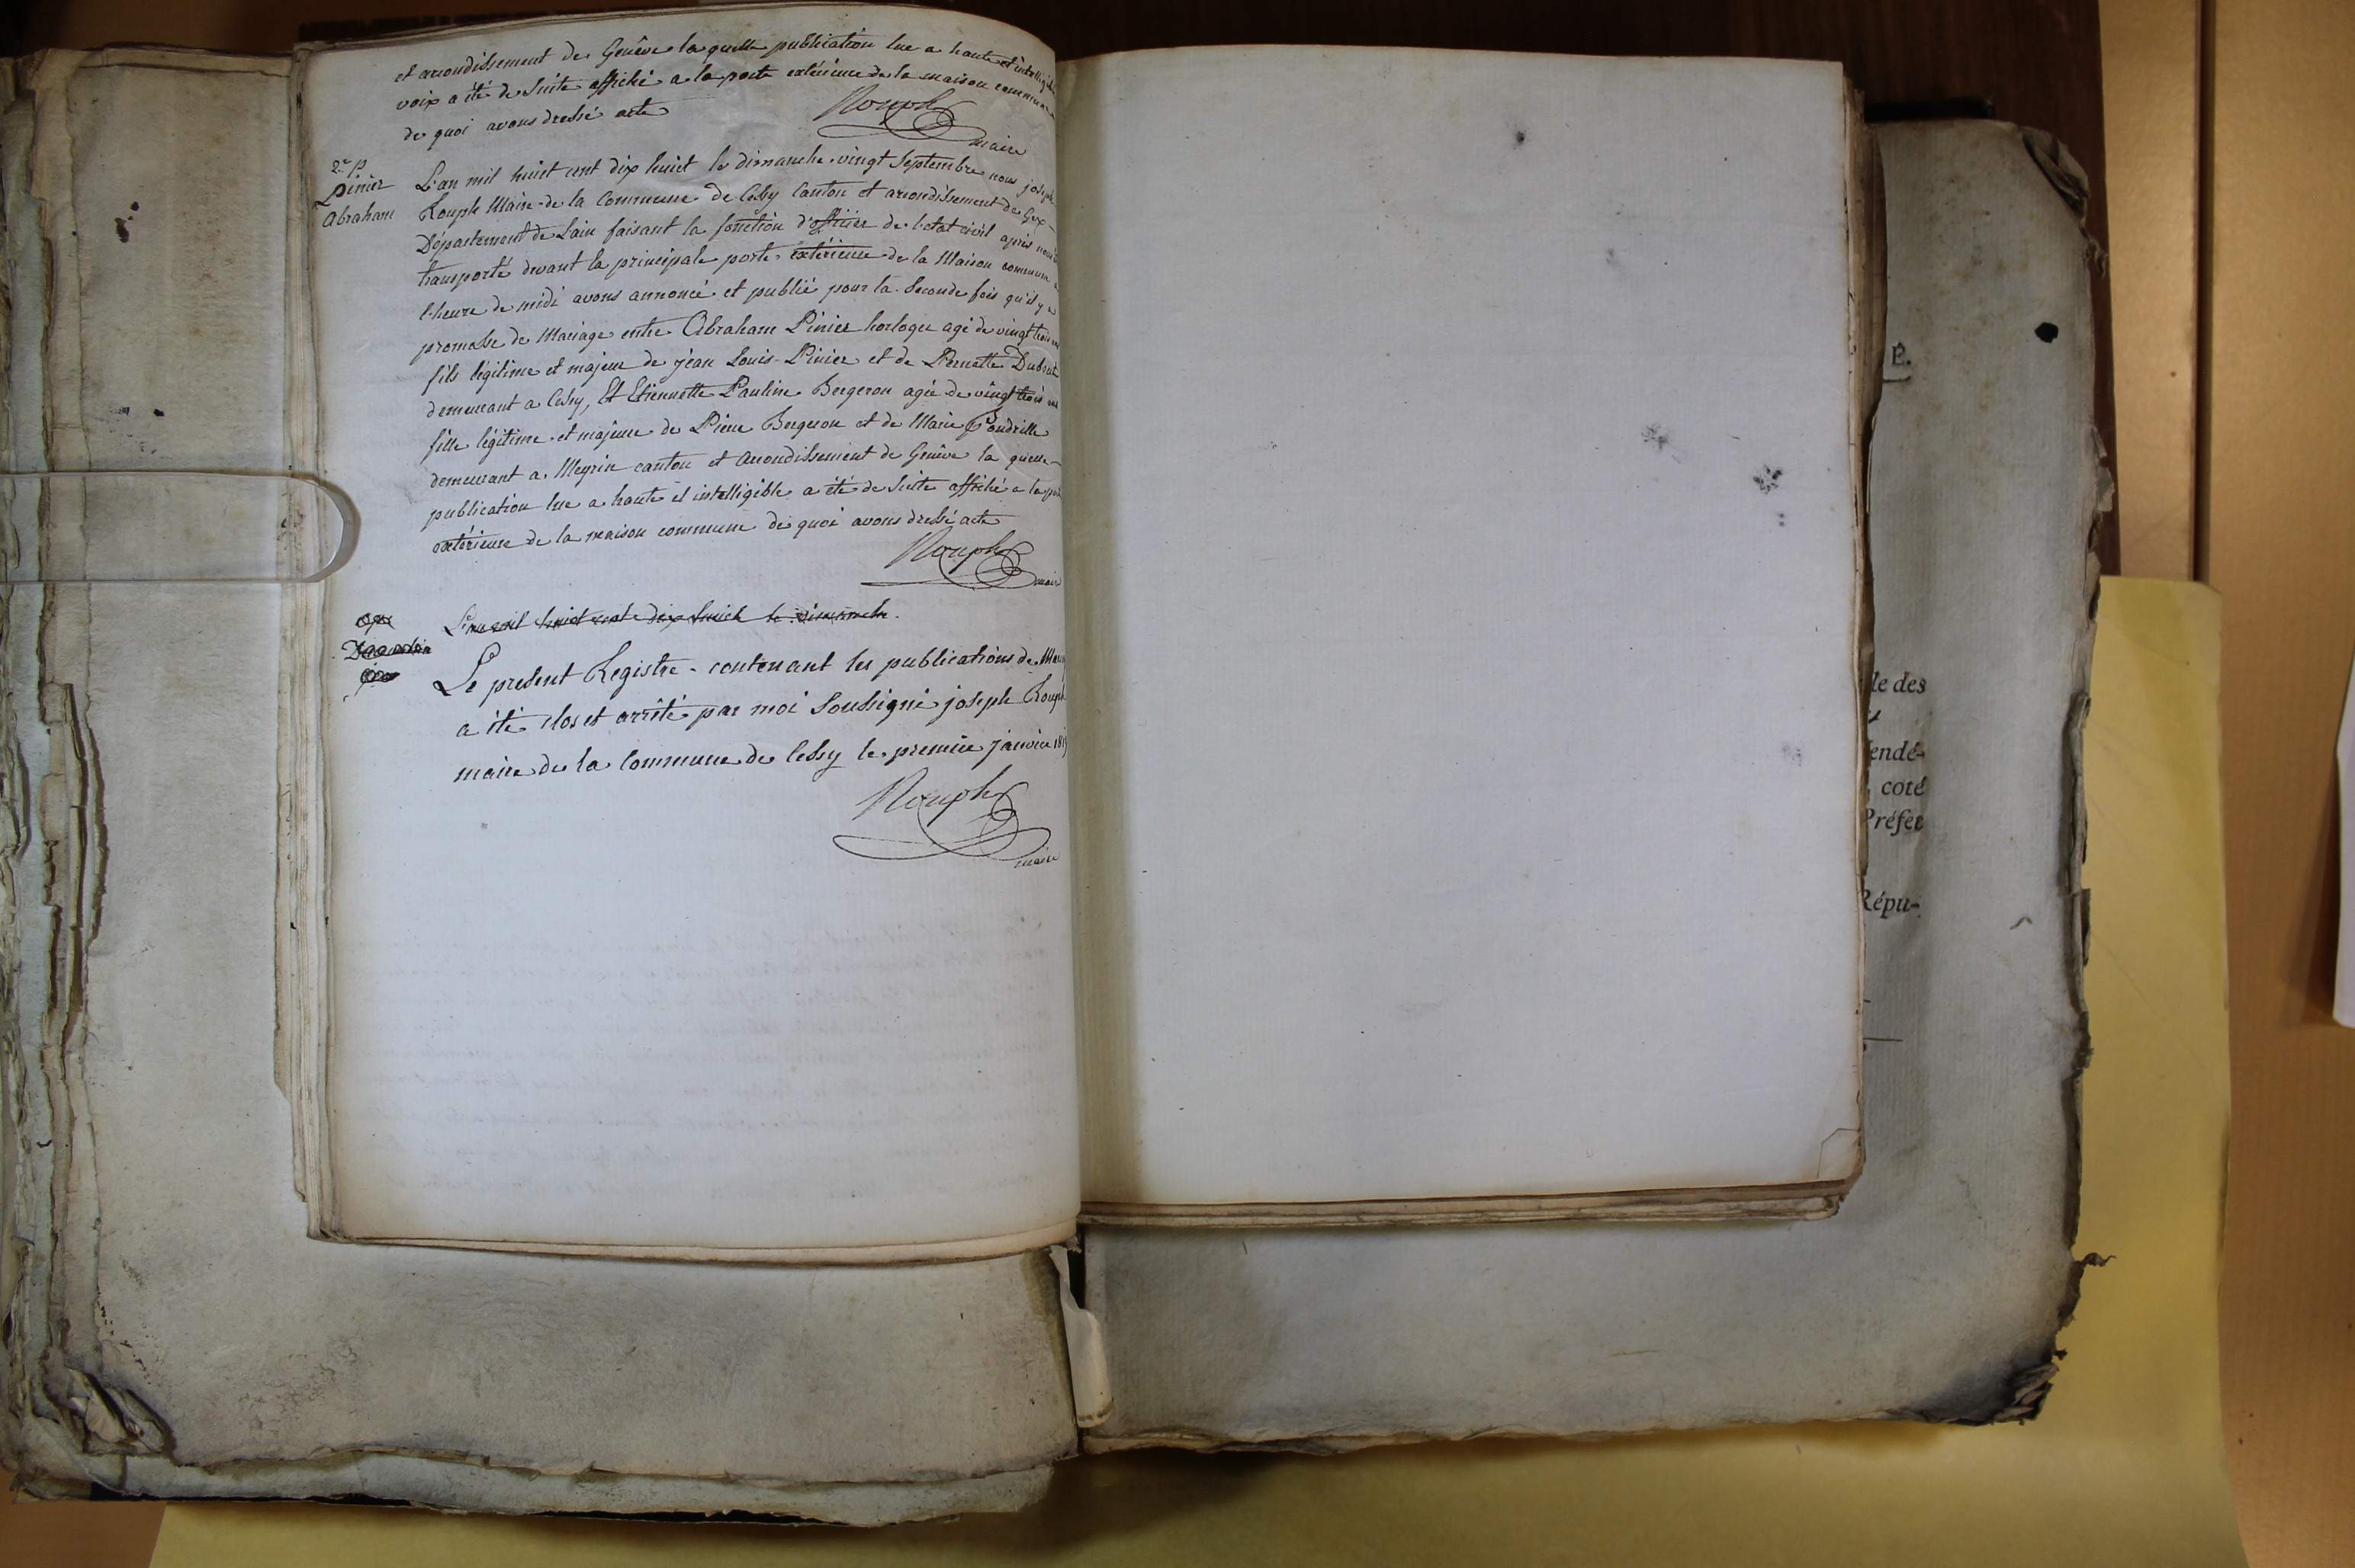 et arrondissement de Genêve la quelle publication lue a haute et intelligible
voix a été de suite affiché a la porte extérieure de la maison commune
de quoi avons dressé acte
Rouph
maire
2e p
Pinier
Abraham
L'an mil huit cent dix huit le dimanche vingt Septembre nous joseph
Rouph Maire de la Commune de Cessy Canton et arrondissement de Gex
Département de Lain faisant la fonction d'officier de l'etat civil après nous
transporté devant la principale porte extérieure de la Maison commune a
l'heure de midi avons annoncé et publié pour la Seconde fois qu'il y a
promesse de Mariage entre Abraham Pinier horloger agé de vingt trois ans
fils légitime et majeur de jean Louis Pinier et de Pernette
demeurant a Cessy, Et Etiennette Pauline Bergeron agée de vingt trois ans
fille légitime et majeure de Pierre Bergeron et de Marie
demeurant a Meyrin canton et Arrondissement de Genêve la quelle
publication lue a haute et intelligible a été de suite affiché a la porte
extérieure de la maison commune de quoi avons dressé acte
Rouph
maire
L'an mil huit cent dix huit le dimanche.
Le present Registre contenant les publications de
a été clos et arrêté par moi soussigné joseph Rouph
maire de la Commune de Cessy le premier Janvier 1819
Rouph
maire
E.
le des
endé-
coté
Préfet
Répu-